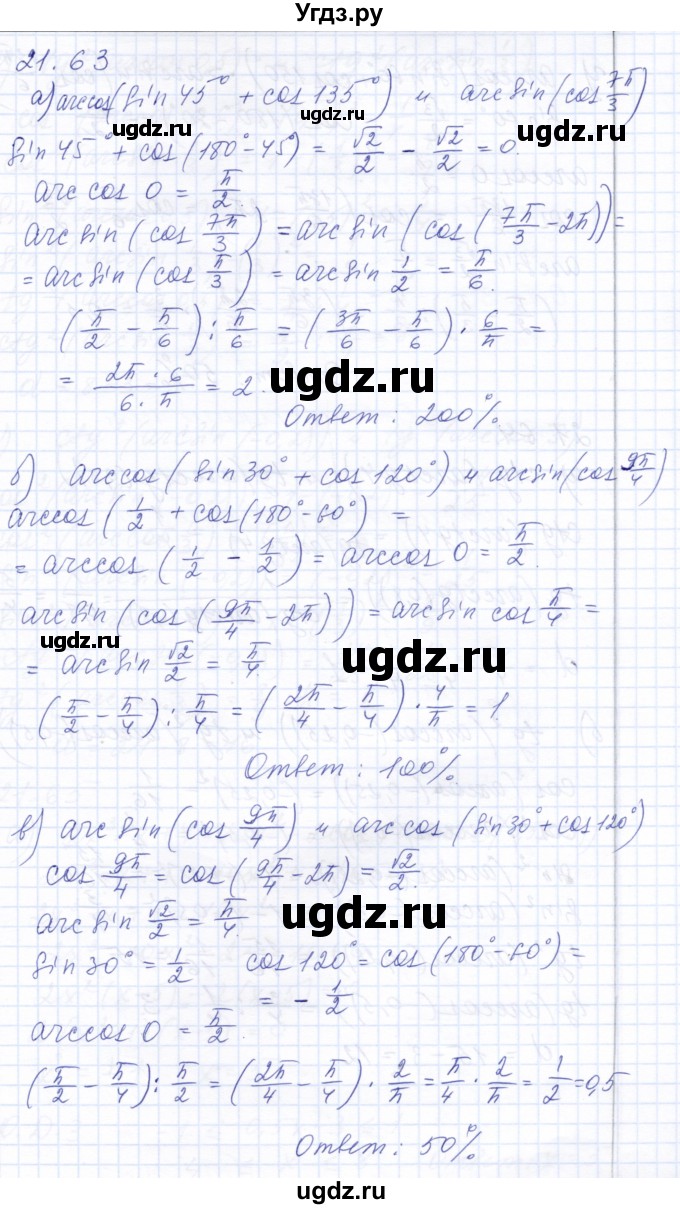 Угдз.ру
21.63
а) arccos(sin 45° + cos 135°) и arcsin(cos 7π/3)
ugdz.ru ugdz.ru
sin 45° + cos(180° - 45°) = √2/2 - √2/2 = 0.
arccos 0 = π/2.
arcsin(cos 7π/3) = arcsin(cos(7π/3 - 2π)) =
= arcsin(cos π/3) = arcsin 1/2 = π/6.
(π/2 - π/6) : π/6 = (3π/6 - π/6) · 6/π =
= 2π · 6 / 6 · π = 2.
ugdz.ru
Ответ: 200%
б) arccos(sin 30° + cos 120°) и arcsin(cos 9π/4)
ugdz.ru ugdz.ru
arccos(1/2 + cos(180° - 60°) =
= arccos(1/2 - 1/2) = arccos 0 = π/2.
arcsin(cos(9π/4 - 2π)) = arcsin cos π/4 =
ugdz.ru
= arcsin √2/2 = π/4
ugdz.ru
(π/2 - π/4) : π/4 = (2π/4 - π/4) · 4/π = 1.
Ответ: 100%.
ugdz.ru ugdz.ru
в) arcsin(cos 9π/4) и arccos(sin 30° + cos 120°)
cos 9π/4 = cos(9π/4 - 2π) = √2/2.
arcsin √2/2 = π/4.
ugdz.ru
sin 30° = 1/2 cos 120° = cos(180° - 60°) =
= - 1/2
arccos 0 = π/2.
ugdz.ru ugdz.ru
(π/2 - π/4) : π/2 = (2π/4 - π/4) · 2/π = π/4 · 2/π = 1/2 = 0,5
Ответ: 50%
ugdz.ru